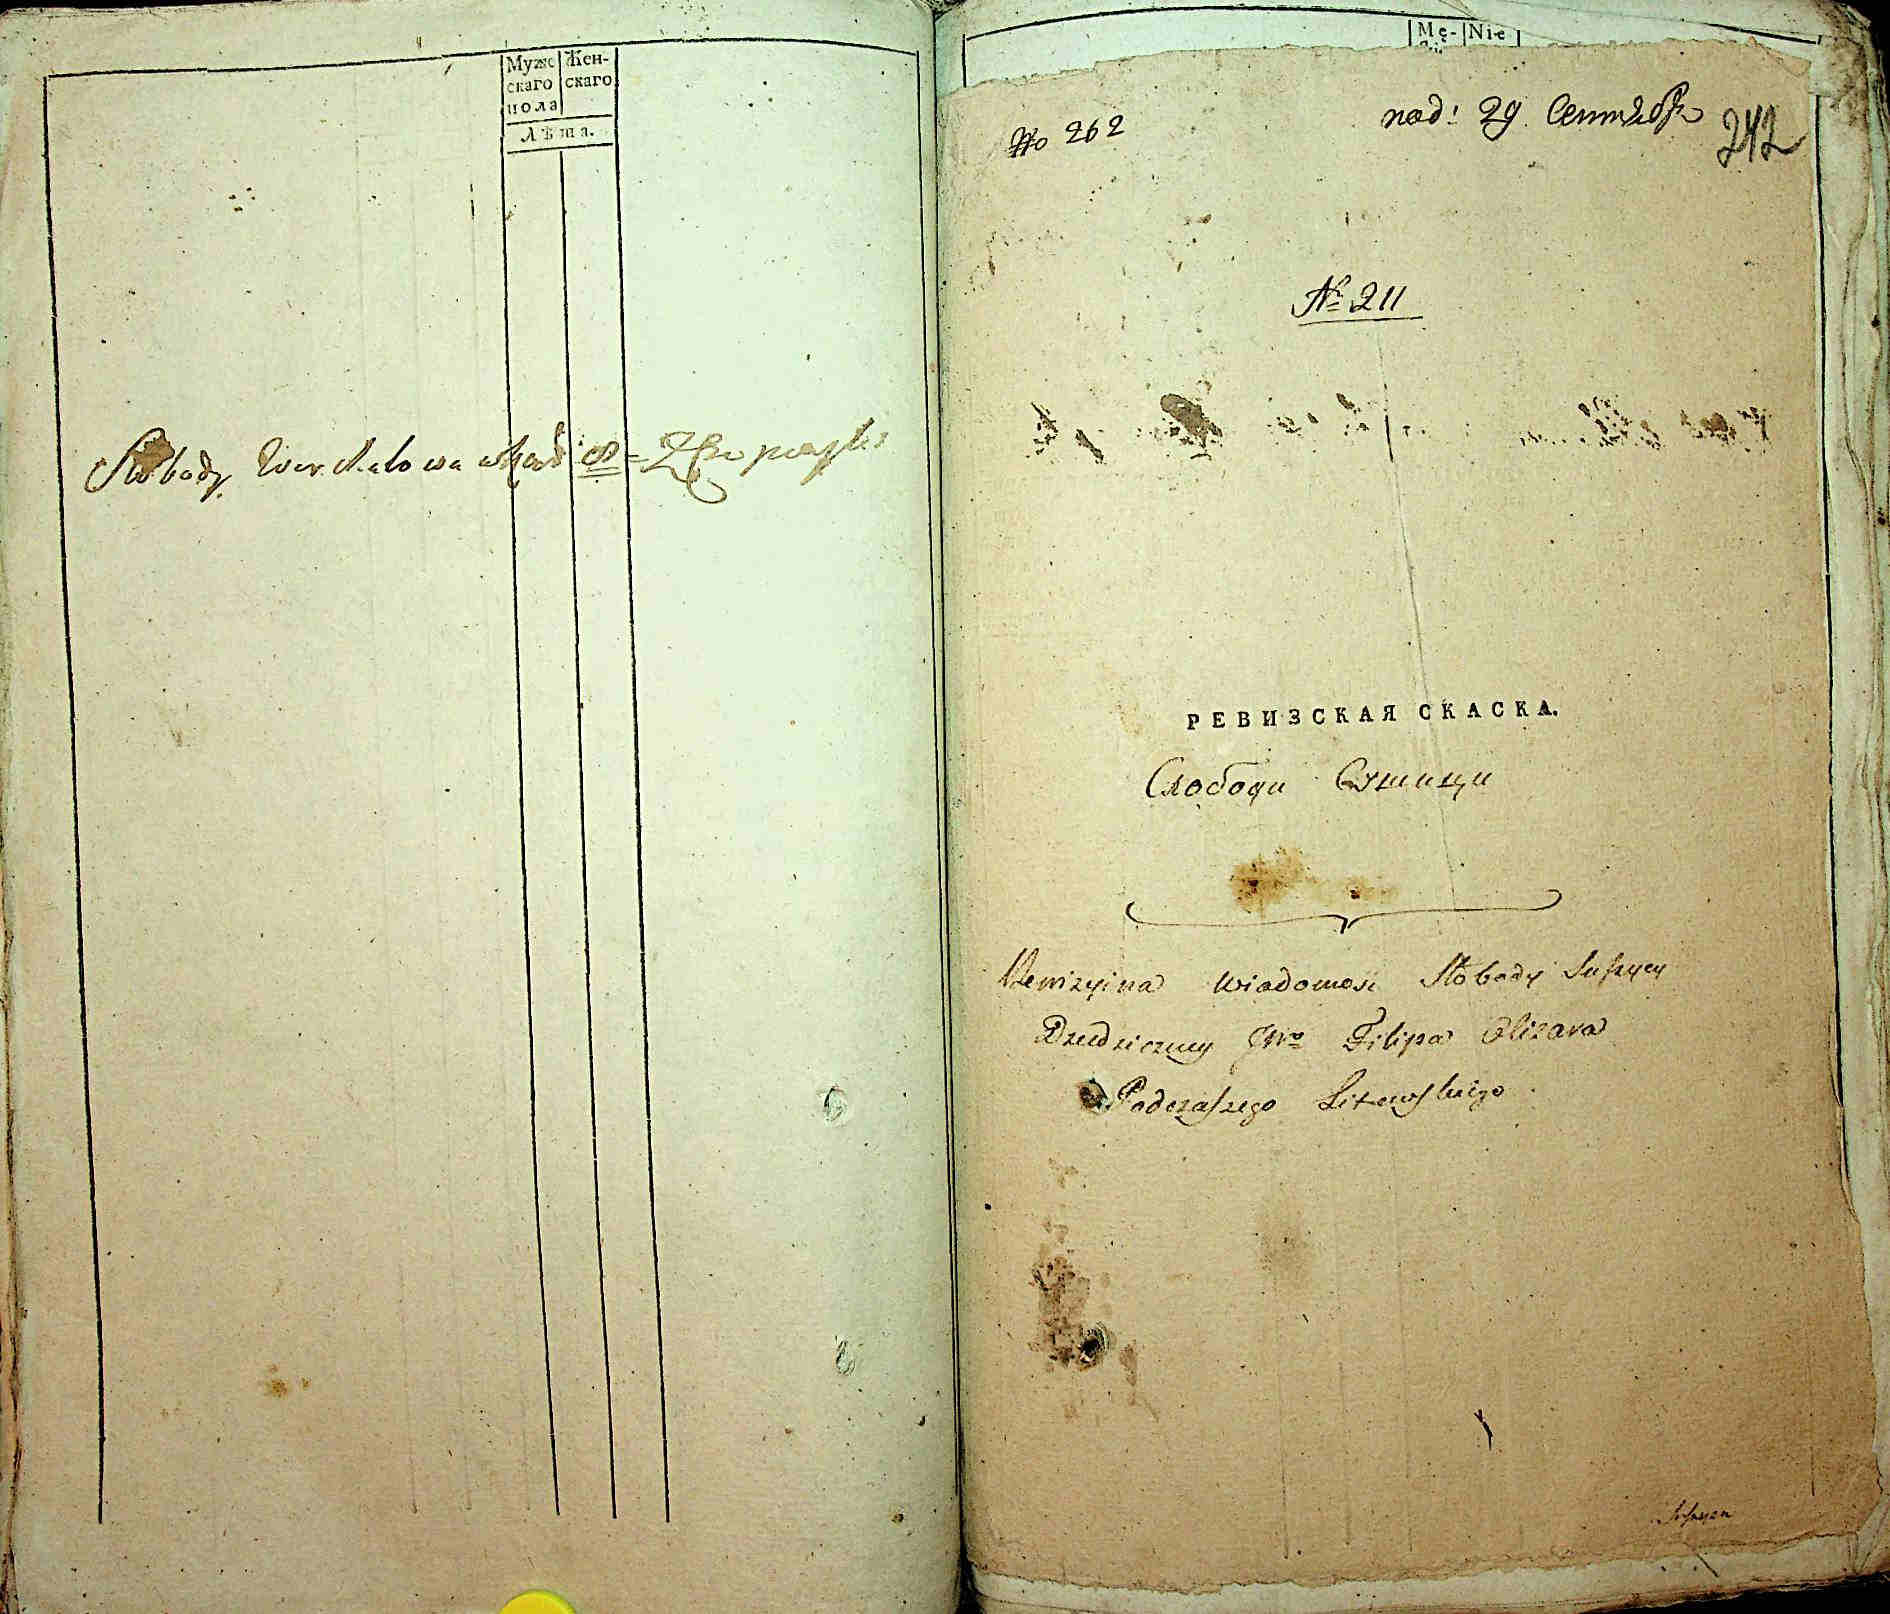 Муже
скаго
пола
Жен-
скаго
Лѣта.
Słobody
Mę-
Nie
No 262
под: 29 Сентября
242
№ 211
РЕВИЗСКАЯ СКАСКА.
Слободи Сушици
Rewizyina Wiadomość Słobody Suszycy
Dziedziczney JWo Filipa Olizara
Podczaszego Litewskiego